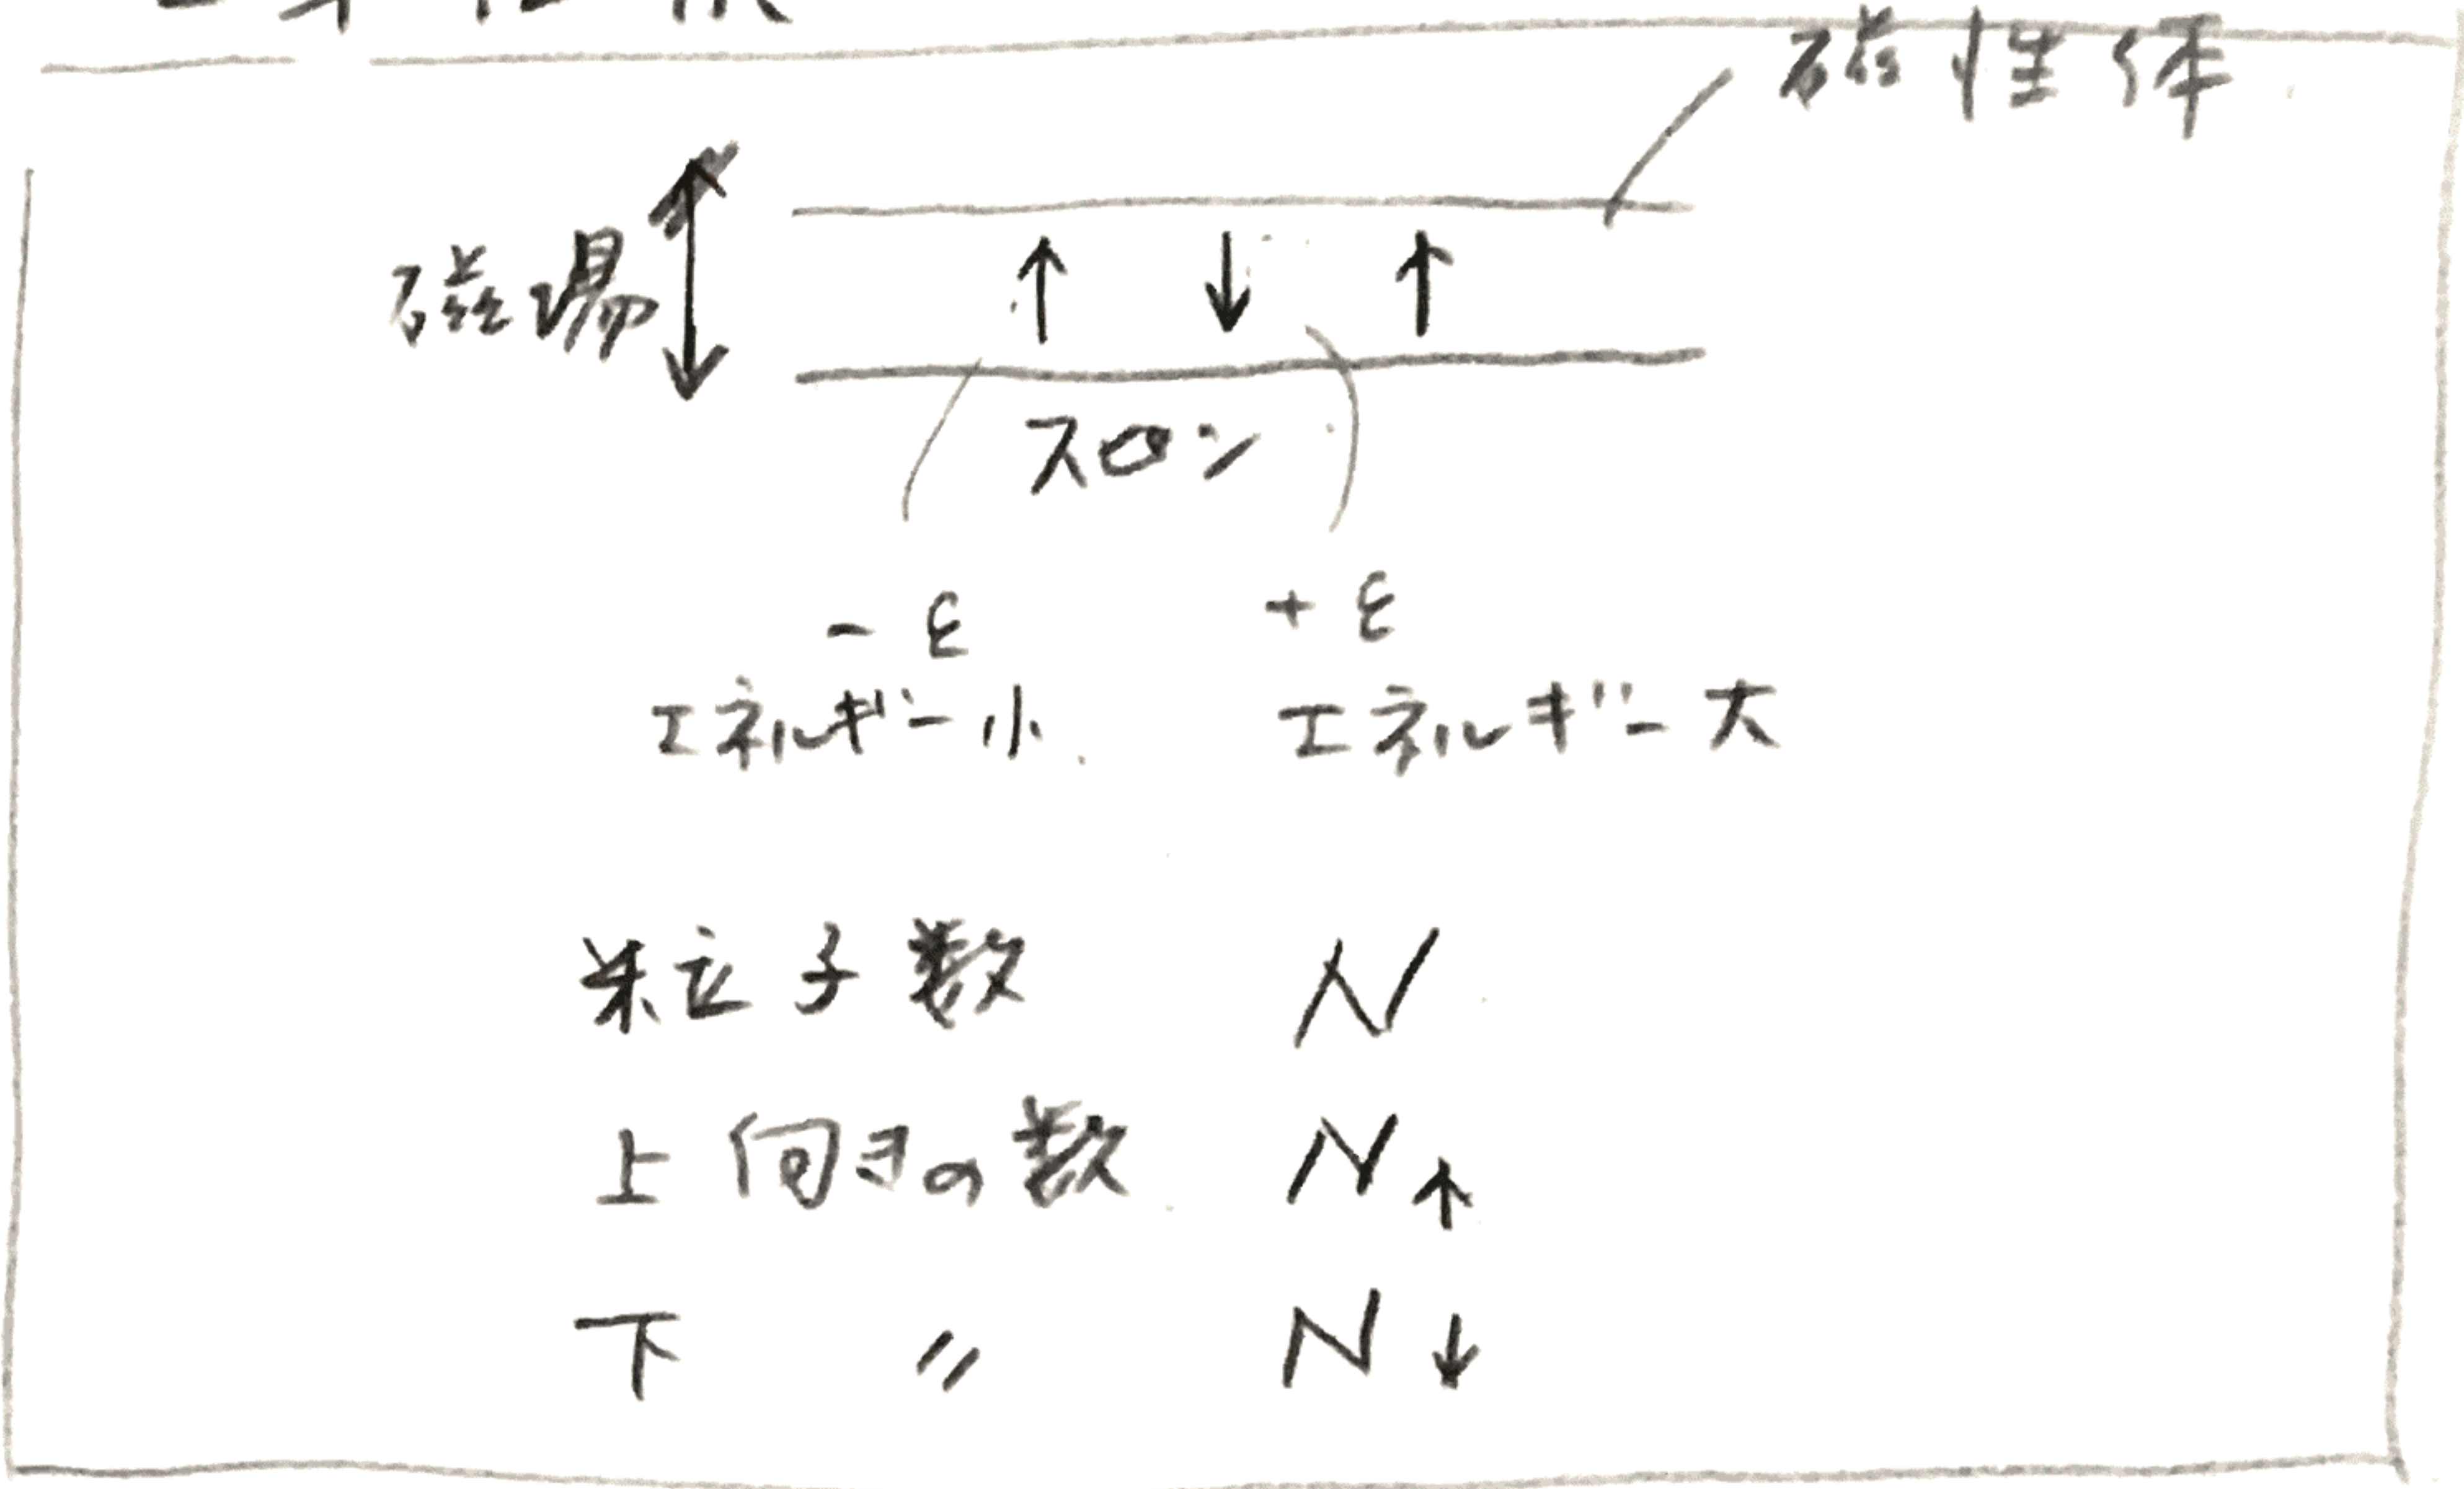 磁性体
磁場
スピン
-ε +ε
エネルギー小 エネルギー大
粒子数 N
上向きの数 N↑
下 〃 N↓